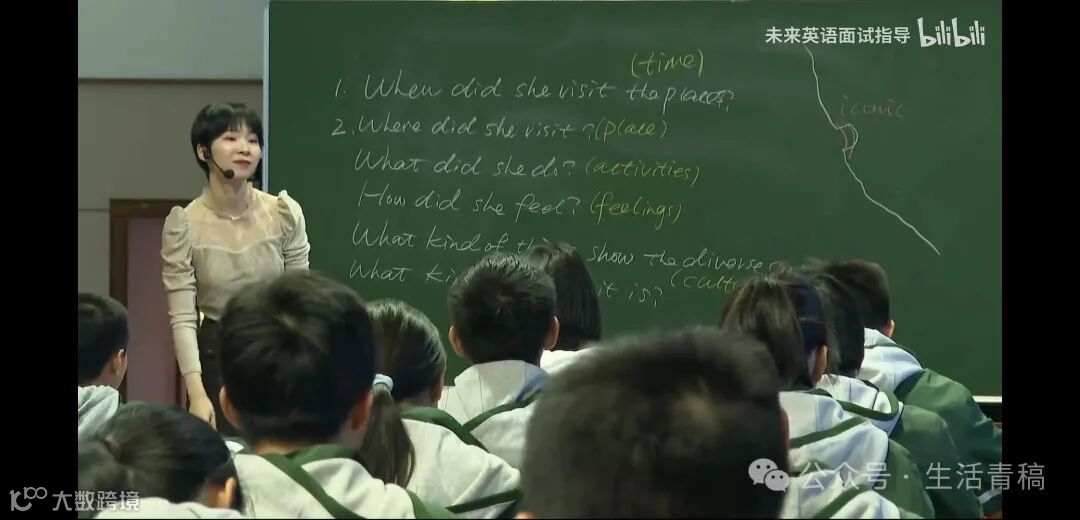 未来英语面试指导 bilibili
(time)
1. When did she visit the places?
iconic
2. Where did she visit? (place)
What did she do? (activities)
How did she feel? (feelings)
What kind of show the diverse
What it is?
公众号 · 生活青稞
大数跨境